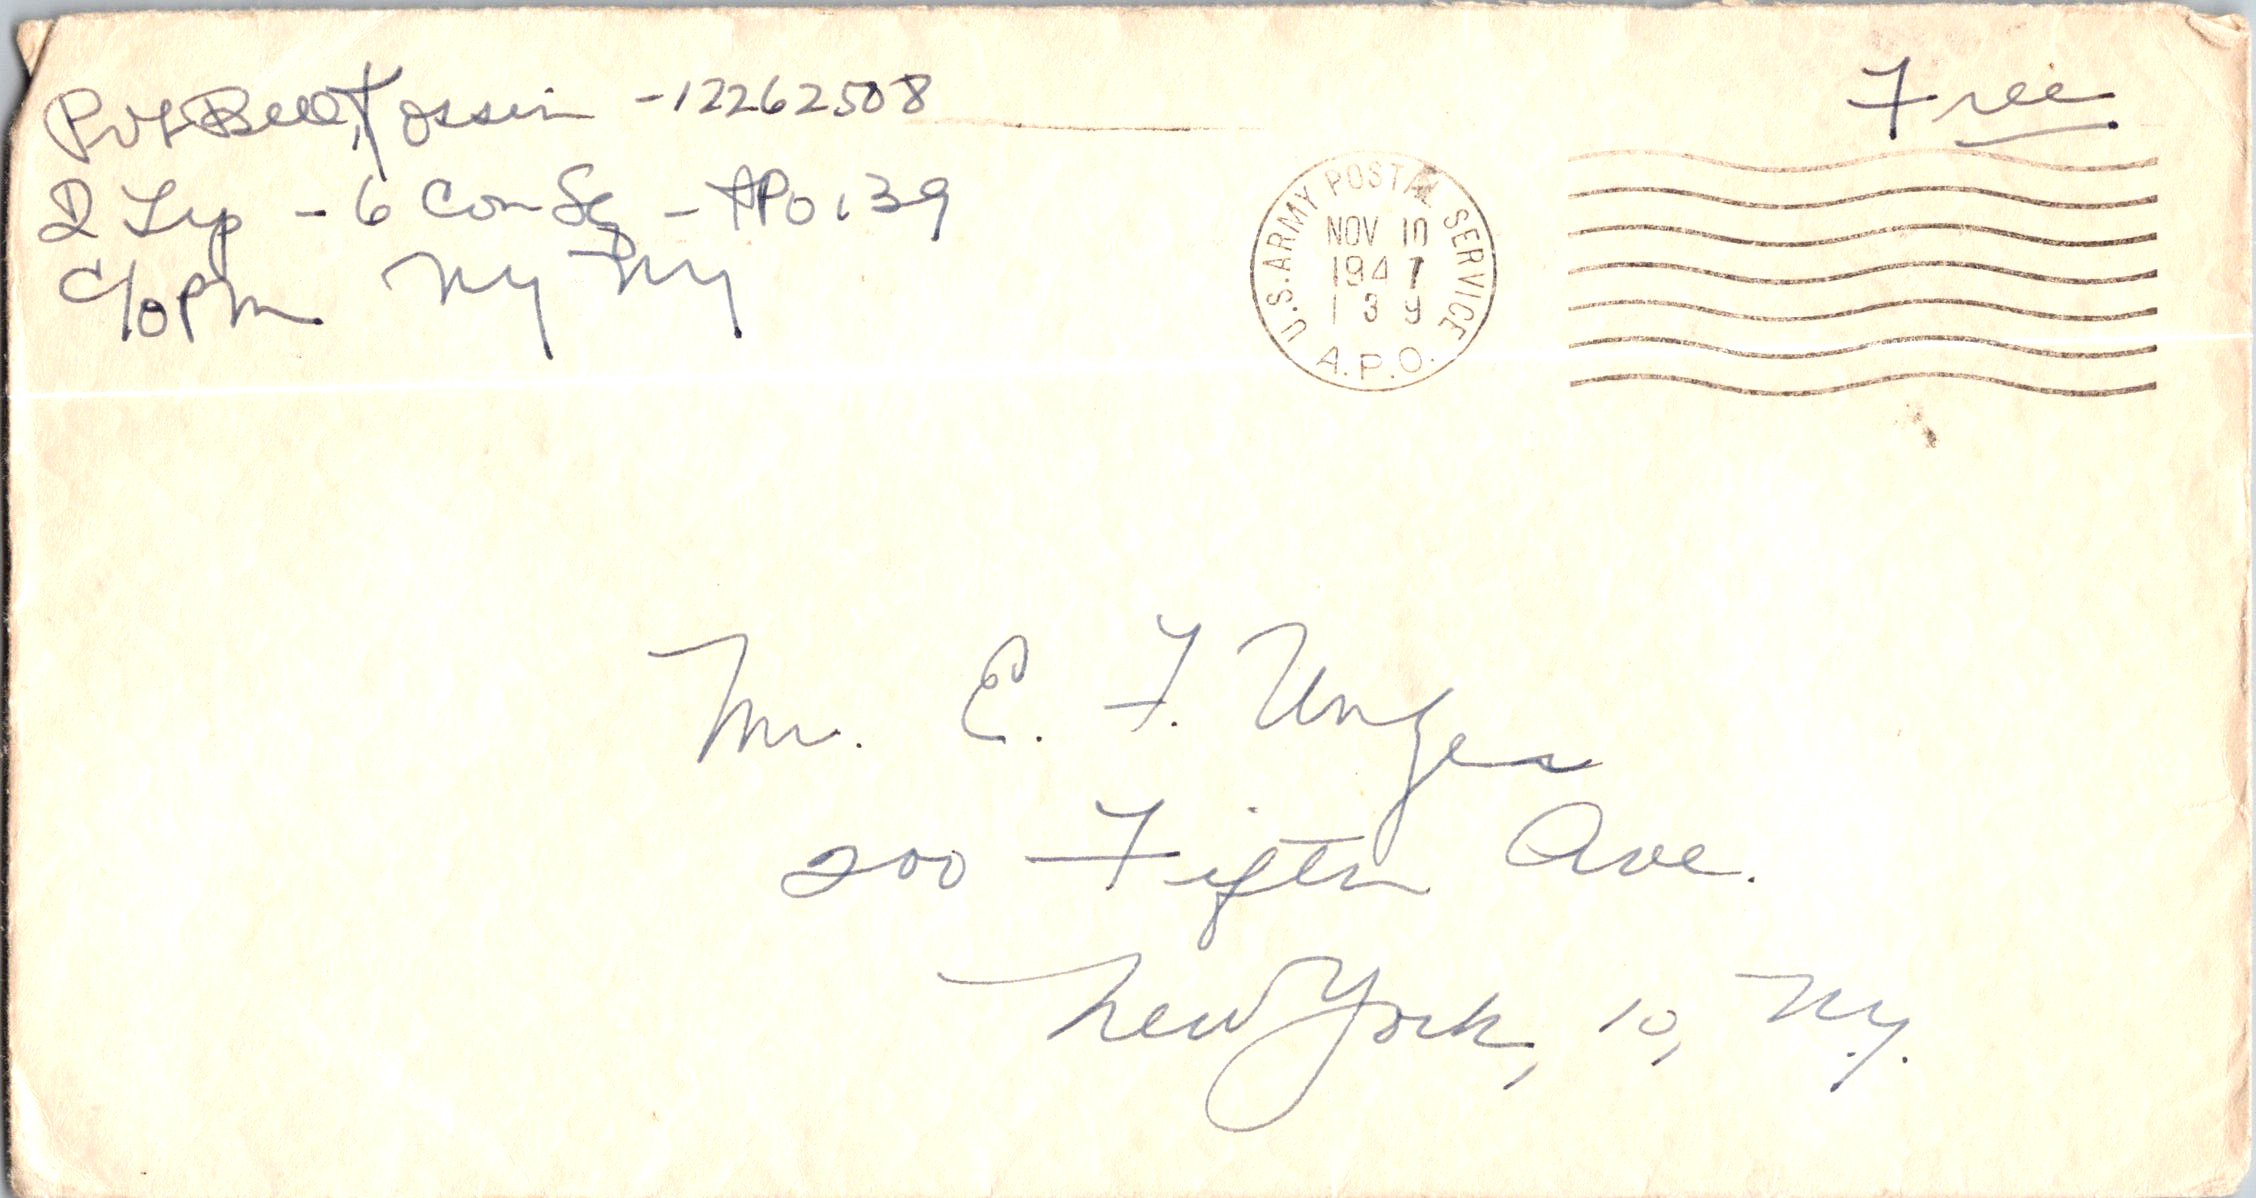 Pvt Bell, Kossin - 12262508
D Trp - 6 Con Sq - APO 139
C/O PM NY NY
Free
U.S. ARMY POSTAL SERVICE
NOV 10
1947
139
A.P.O.
Mr. E. F. Unger
200 Fifth Ave.
New York, 10, N.Y.